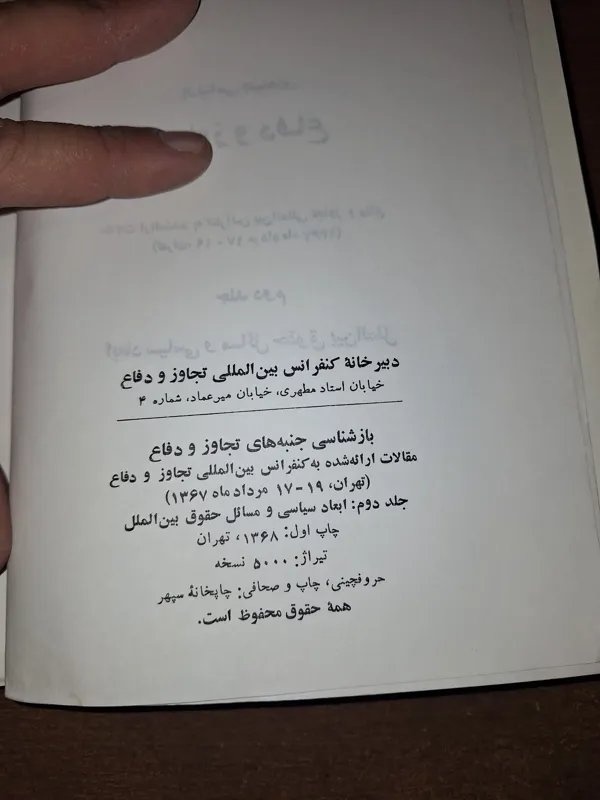 دبیرخانهٔ کنفرانس بین‌المللی تجاوز و دفاع
خیابان استاد مطهری، خیابان میرعماد، شماره ۴
بازشناسی جنبه‌های تجاوز و دفاع
مقالات ارائه‌شده به کنفرانس بین‌المللی تجاوز و دفاع
(تهران، ۱۹-۱۷ مردادماه ۱۳۶۷)
جلد دوم: ابعاد سیاسی و مسائل حقوق بین‌الملل
چاپ اول: ۱۳۶۸، تهران
تیراژ: ۵۰۰۰ نسخه
حروفچینی، چاپ و صحافی: چاپخانهٔ سپهر
همهٔ حقوق محفوظ است.